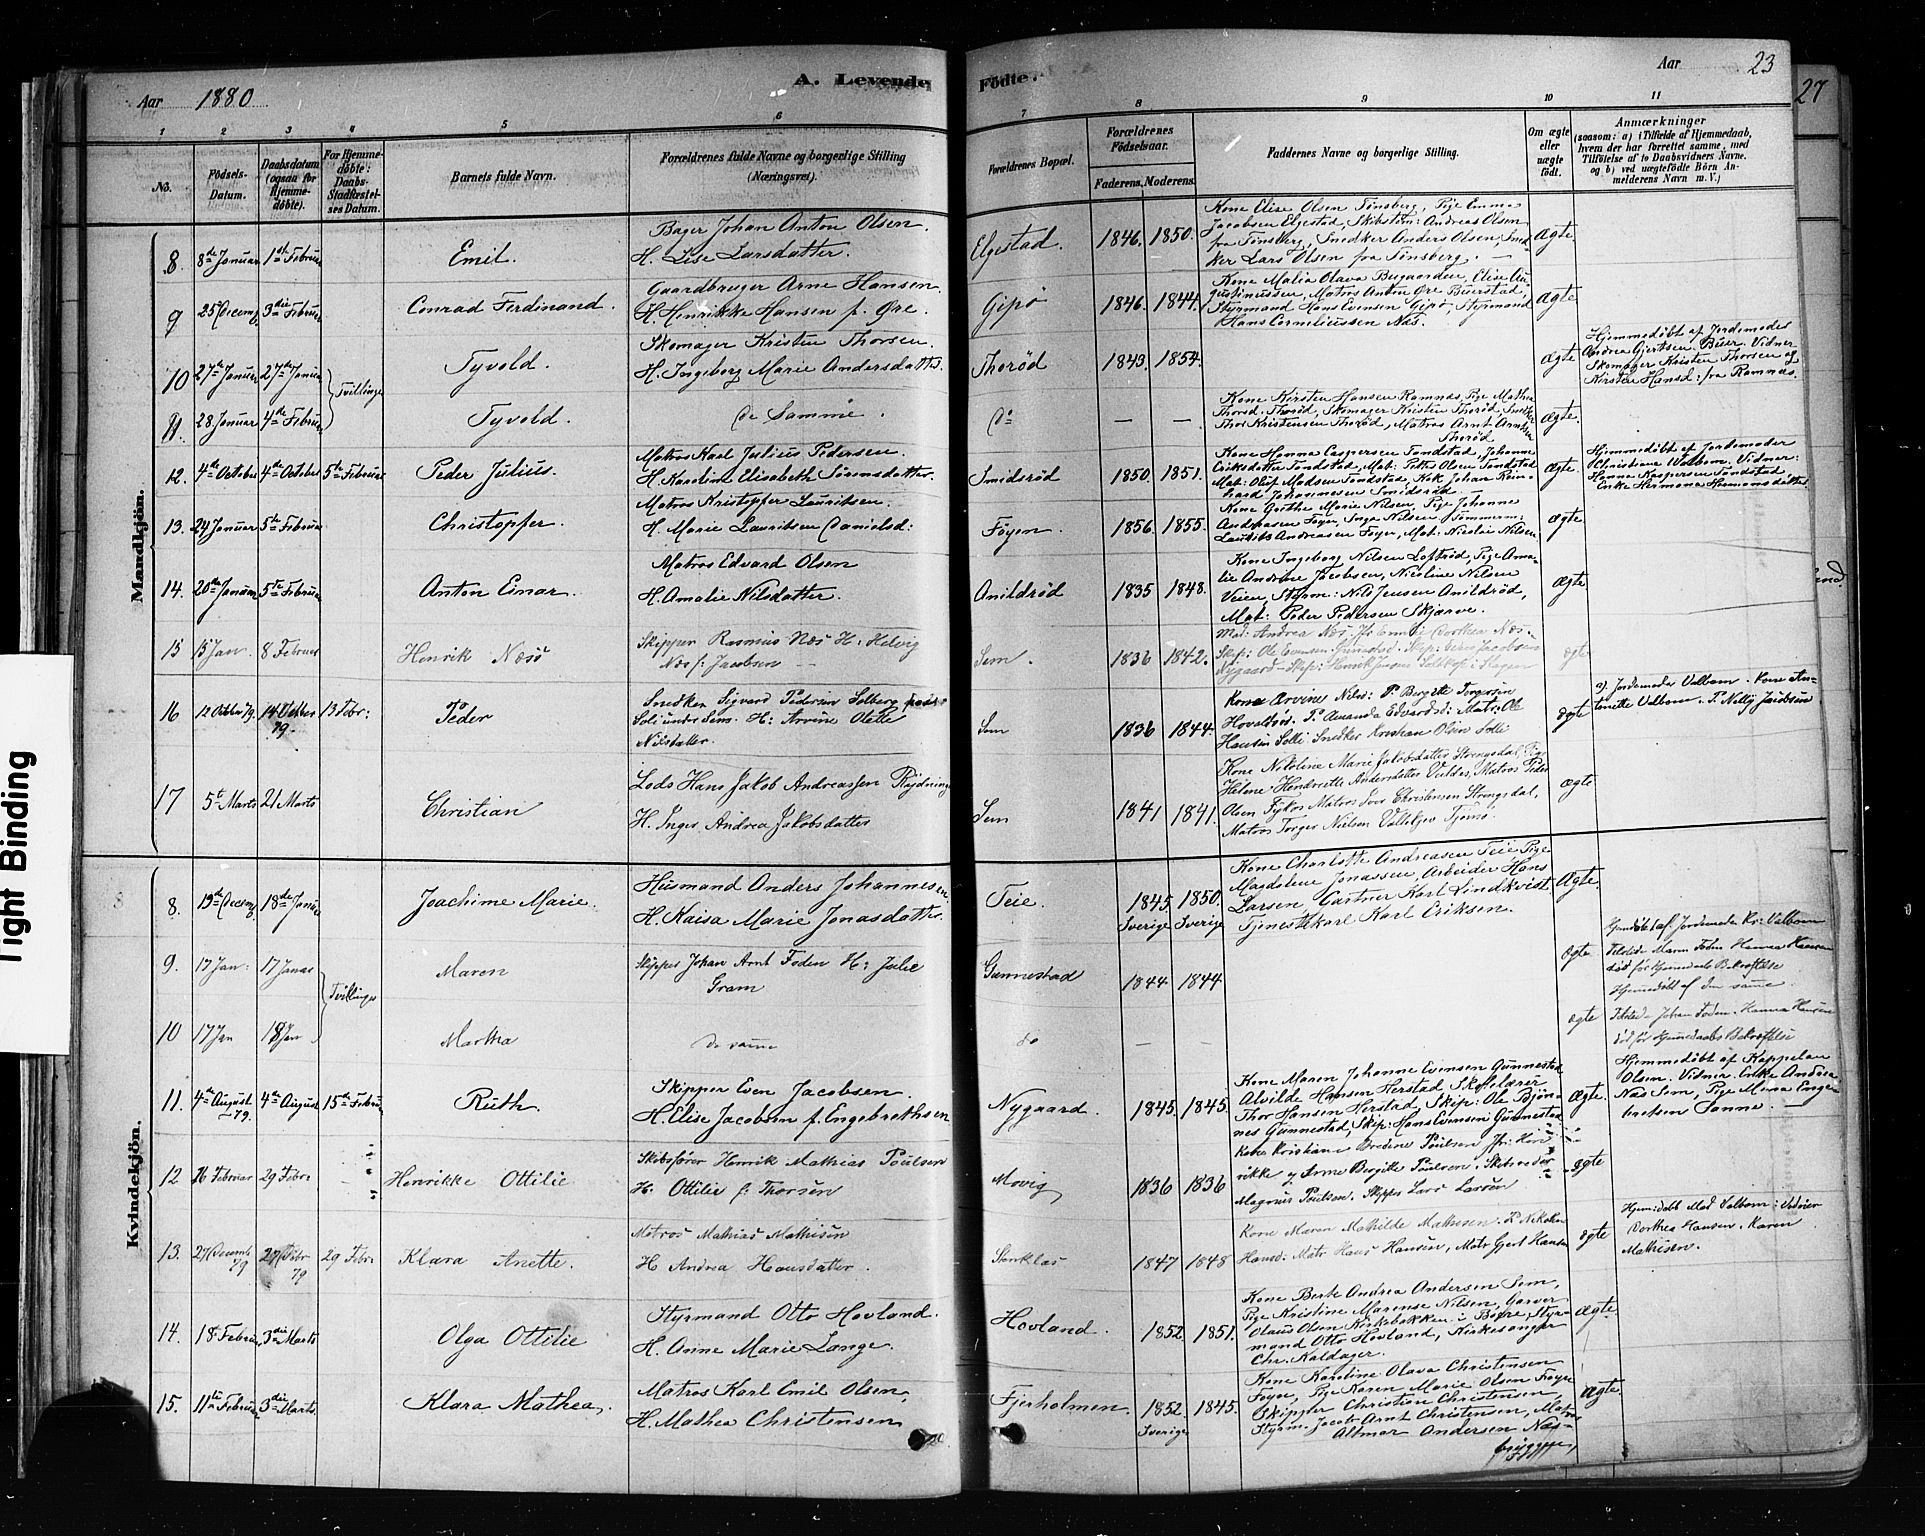 Aar 1880
A. Levende Fødte.
Aar 23
27
1 2 3 4 5 6 7 8 9 10 11
No.
Fødsels-Datum.
Daabsdatum (ogsaa for Hjemmedøbte).
For Hjemmedøbte: Daabs-Stadfæstelses Datum.
Barnets fulde Navn.
Forældrenes fulde Navne og borgerlige Stilling (Næringsvei).
Forældrenes Bopæl.
Forældrenes Fødselsaar.
Faderens. Moderens.
Faddernes Navne og borgerlige Stilling.
Om ægte eller uægte født.
Anmærkninger
(saasom: a) i Tilfælde af Hjemmedaab, hvem der har forrettet samme, med Tilføielse af to Daabsvidners Navne, og b) ved uægtefødte Børn Anmelderens Navn m. V.)
Mandkjøn.
8. 8de Januar 1ste Februar Emil. Bager Johan Anton Olsen. H. Lise Larsdatter. Elgestad. 1846. 1850.
Kone Elise Olsen Tønsberg, Pige Emma
Jacobsen Elgestad, Skibstøm: Andreas Olsen
fra Tønsberg, Snedker Anders Olsen, Sned-
ker Lars Olsen fra Tønsberg. Ægte.
9 25 Decemb. 3die Februar Conrad Ferdinand. Gaardbruger Arne Hansen H. Henrikke Hansen f. Øre. Gipø 1846. 1844.
Kone Malia Olava Bugaarden, Elise Au-
gustinussen, Matros Anton Øre Buerstad,
Styrmand Hans Evensen Gipø, Styrmand
Hans Corneliussen Næs. Ægte
10 27de Januar 27de Januar Tvillinge Tyvold. Skomager Kristen Thorsen. H. Ingeborg Marie Andersdatter. Thorød 1843. 1854. Ægte
Hjemmedøbt af Jordemoder
Andrea Gjertsen Buer. Vidner
Skomager Kristen Thorsen og
Kirstine Hansd: fra Ramnæs.
11. 28 Januar 4de Februar Tyvold. de Samme. do — —
Kone Kirsten Hansen Ramnæs, Pige Mathea
Thorsd. Thorød, Skomager Kristen Thorød, Snedker
Thor Kristensen Thorød, Matros Arnt Arntsen
Thorød Ægte.
12. 4de October 4de October 5te Februar Peder Julius. Matros Karl Julius Pedersen. H. Karoline Elisabeth Sørensdatter. Smidsrød 1850. 1851.
Kone Hanna Caspersen Sandstad, Johanne
Eriksdatter Sandstad, Mat: Peter Olsen Sandstad
Mat: Oluf Madsen Sandstad, Kok Johan Rein-
hard Johannesen Smidsrød. Ægte.
Hjemmedøbt af Jordemoder
Christiane Valbom. Vidner:
Hanna Kaspersen Sandstad,
Enke Hermana Hermansdatter
13. 24 Januar 5te Februar Christopfer. Matros Kristopfer Lauritsen. H. Marie Lauritsen Danielsd: Føyen. 1856. 1855.
Kone Grethe Marie Nilsen, Pige Johanne
Andreasen Føyen, Inga Nilsen, Tømmerm:
Laurits Andreasen Føyen, Mat: Nicolai Nilsen Ægte.
14. 20de Januar 5te Februar Anton Einar. Matros Edvard Olsen H. Amalie Nilsdatter. Anildrød 1835 1848.
Kone Ingeborg Nilsen Loftrød, Pige Ama-
lie Andrine Jacobsen, Nicoline Nilsen
Veien, Styrm: Nils Jensen Anildrød,
Mat: Peder Pedersen Skjærve. Ægte.
15 15 Jan. 8 Februar Henrik Næss Skipper Rasmus Næs H. Helvig Næs f. Jacobsen Sem. 1836 1842.
Mad: Andrea Næs, Fr. Emilie Dorthea Næs.
Skip: Ole Evensen Gunnestad. Skip: Even Jacobsen
Nygaard - Skip: Henrik Jensen ægte
16 12 October 79. 14 October 79. 13 Febr: Peder Snedker Sigvard Pedersen Solberg Soli under Sem. H: Arvine Olette Nilsdatter. Sem 1836 1844.
Kone Arvine Nilsd: P. Bergitte Torgersen
Hovaldsrø. P. Amanda Edvardsd: Matr: Ole
Hansen Solli Snedker Kristian Olsen Solli ægte
a). Jordemoder Valbom. Kone An-
tonette Valbom. P. Nelly Jacobsen
17 5te Marts 21 Marts Christian Lods Hans Jakob Andreassen Røjdning H. Inger Andrea Jakobsdatter Sem 1841 1841.
Kone Nikoline Marie Jakobsdatter Strengsdal, Pige
Helene Hendrette Andersdatter Valdes, Matros Peder
Olsen Fykes Matros Iver Christensen Strengsdal,
Matros Torger Nielsen Tjømø. ægte
Kvindekjøn.
8. 19de Decemb 18de Januar Joachime Marie. Husmand Anders Johannesen H. Kaisa Marie Jonasdatter. Teie. 1845. Sverige 1850. Sverige
Kone Charlotte Andreasen Teie Pige
Magdelene Jonassen, Arbeider Hans
Larsen Gartner Karl Lindkvist
Tjenestekarl Karl Eriksen. Ægte.
9. 17 Jan: 17 Januar Tvillinge Maren Skipper Johan Arnt Foden H: Julie Gram Gunnestad 1844 1844 ægte
Hjemdøbt af: Jordemoder Kr: Valbom
Tilstede Maren Foden Hanna Hansen
død før Hjemedaabs Bekræftelse
Hjemedøbt af den samme.
10 17 Jan 18 Jan Martha de samme do — — ægte
Tilstede Johan Foden. Hanna Hansen
død før Hjemedaabs Bekræftelse
11. 4de August 79. 4de August 15de Februar Ruth. Skipper Even Jacobsen. H. Elise Jacobsen f. Engebrethsen Nygaard. 1845. 1845.
Kone Maren Johanne Evensen Gunnestad
Alvilde Hansen Herstad Skolelærer
Thor Hansen Herstad, Skip: Ole Bjøn-
nes Gunnestad, Skip: Hans Evensen Gunnestad Ægte.
Hjemmedøbt af Kappelan
Olsen. Vidner: Enke Andrea
Næs Sem, Pige Mina Enge-
bretsen Sanne.
12 16 Februar 29 Febr. Henrikke Ottilie Skibsfører Henrik Mathias Poulsen H: Ottilie f: Thorsen Movig 1836 1836
Kone Kristiane Bredine Poulsen Fr: Hen-
rikke og Anne Bergitte Poulsen. Skibsreder
Magnus Poulsen. Skipper Lars Larsen ægte
13. 27 Decemb 79 27 Febr 79 29 Febr. Klara Anette. Matros Mathias Mathisen H Andrea Hansdatter. Stenklas 1847 1848
Kone Maren Mathilde Mathisen. P. Nikoline
Hansd: Matr Hans Hansen, Matr Gjert Hansen ægte
Hjemdøbt Mad Valbom: Vidner
Dorthea Hansen. Karen
Mathisen.
14. 18 Februar 3die Marts Olga Ottilie Styrmand Otto Hovland. H. Anne Marie Lange. Hovland. 1852 1851.
Kone Berte Andrea Andersen Sem,
Pige Kristine Marense Nilsen, Garver
Olaus Olsen Kirkebakken i Borre, Styr-
mand Otto Hovland, Kirkesanger
Chr. Kaldager. Ægte.
15. 11te Februar 3die Marts. Klara Mathea. Matros Karl Emil Olsen, H. Mathea Christensen. Fjerholmen. 1852. Sverige 1845.
Kone Karoline Olava Christensen
Føyen, Pige Karen Marie Olsen Føyen
Skipper Christian Christensen,
Styrm: Jacob Arnt Christensen, Matros
Altmar Andersen Næs-
bryggen, Ægte.
Tight Binding